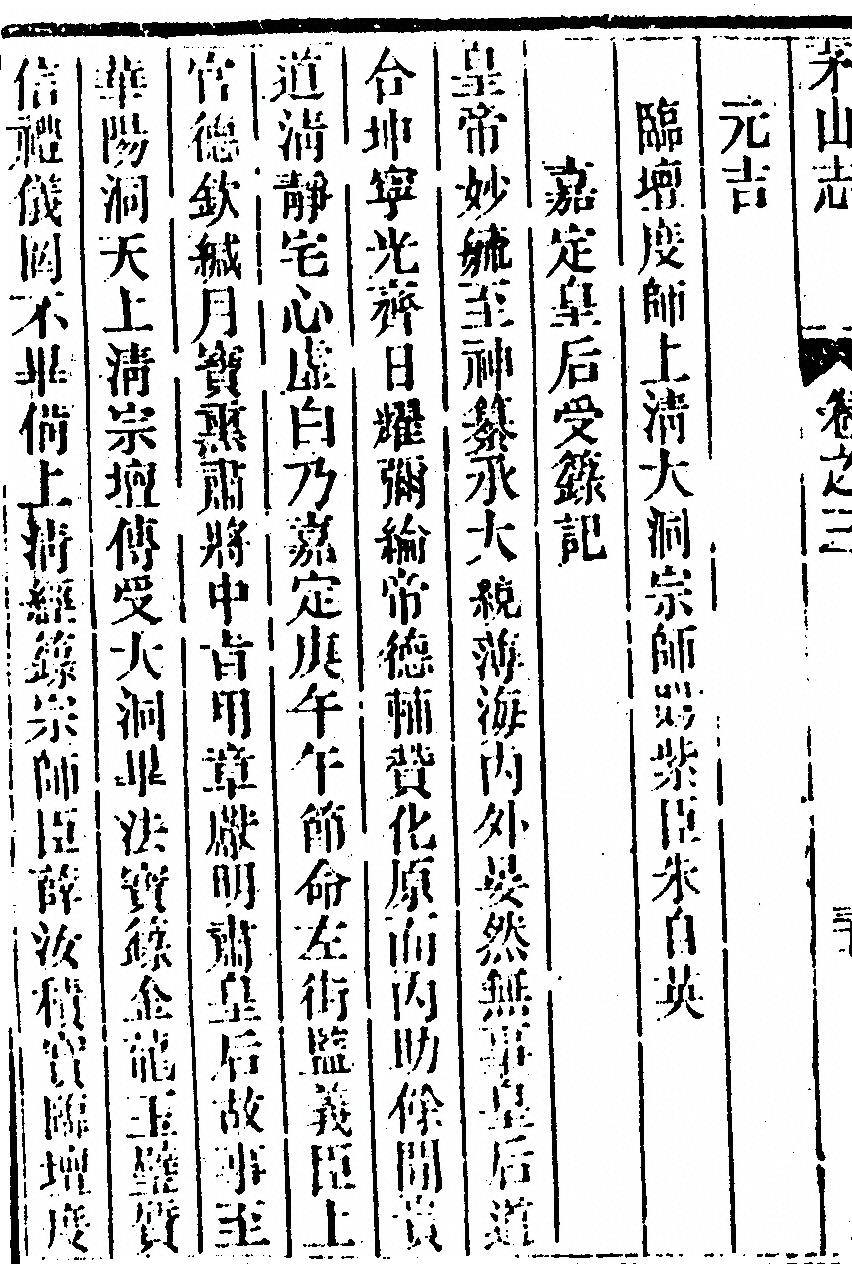 茅山志 卷之三
元吉
臨壇度師上清大洞宗師賜紫臣朱自英
嘉定皇后受籙記
皇帝妙毓至神纂承大統薄海内外晏然無事皇后道
台坤寧光齊日耀彌綸帝德輔贊化原而内助餘閒黃
道清靜宅心虛白乃嘉定庚午午節命左街監義臣上
官德欽緘月寶熏肅將中旨用章獻明肅皇后故事至
華陽洞天上清宗壇傳受大洞畢法寶籙金龍玉璧質
信禮儀罔不畢備上清經籙宗師臣薛汝積實臨壇度